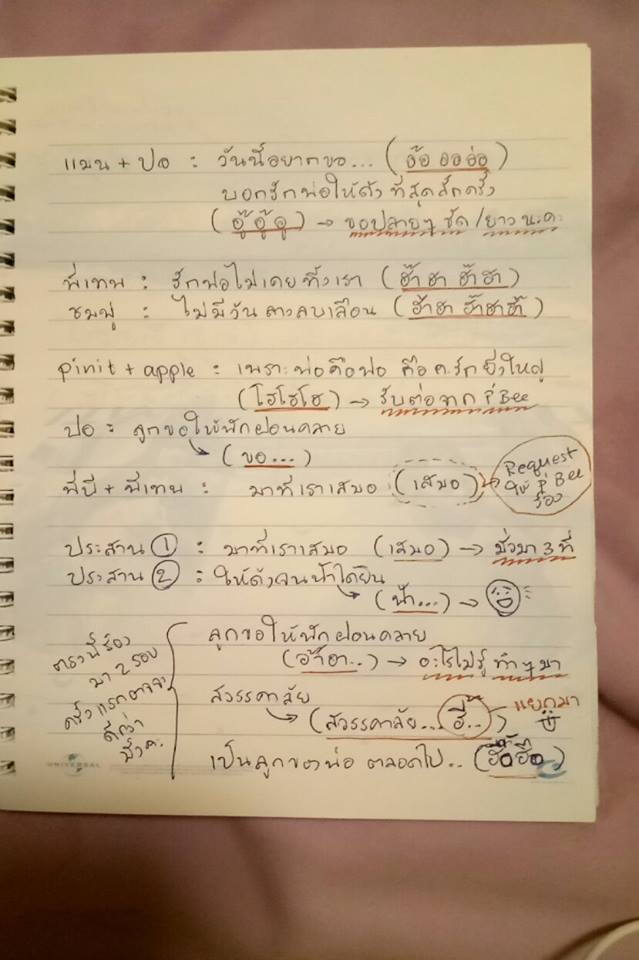 แมน + ปอ : วันนี้อยากขอ... (อ๊อ ออฮ่อ)
บอกรักพ่อให้ดังที่สุดสักครั้ง
(อู๊อู๊อู) → ขอปลายๆ ชัด/ยาว นะคะ
พี่เทน : รักพ่อไม่เคยทิ้งเรา (ฮ้า ฮา ฮ้า ฮา)
ชมพู่ : ไม่มีวันลางลบเลือน (ฮ้าฮา ฮ้าฮาฮ้า)
pinit + apple : เพราะพ่อคือพ่อ คือ ค.รัก ยิ่งใหญ่
(โฮโฮโฮ) → รับต่อจาก P'Bee
ปอ : ลูกขอให้พักผ่อนคลาย
(ขอ...)
พี่บี + พี่เทน : มาที่เราเสมอ (เสมอ) → Request ให้ P'Bee ร้อง
ประสาน ① : มาที่เราเสมอ (เสมอ) → มั่วมา 3 ที่
ประสาน ② : ให้ดังจนฟ้าได้ยิน
(ฟ้า...) →
ตรงนี้ร้อง
มา 2 รอบ
ครั้งแรกอาจจะ
ดีกว่า
ลูกขอให้พักผ่อนคลาย
(อ้าฮา..) → อะไรไม่รู้ ทำๆ มา
สวรรคาลัย
(สวรรคาลัย... ฮี้..) แยกมา
เป็นลูกของพ่อ ตลอดไป..
UNIVERSAL